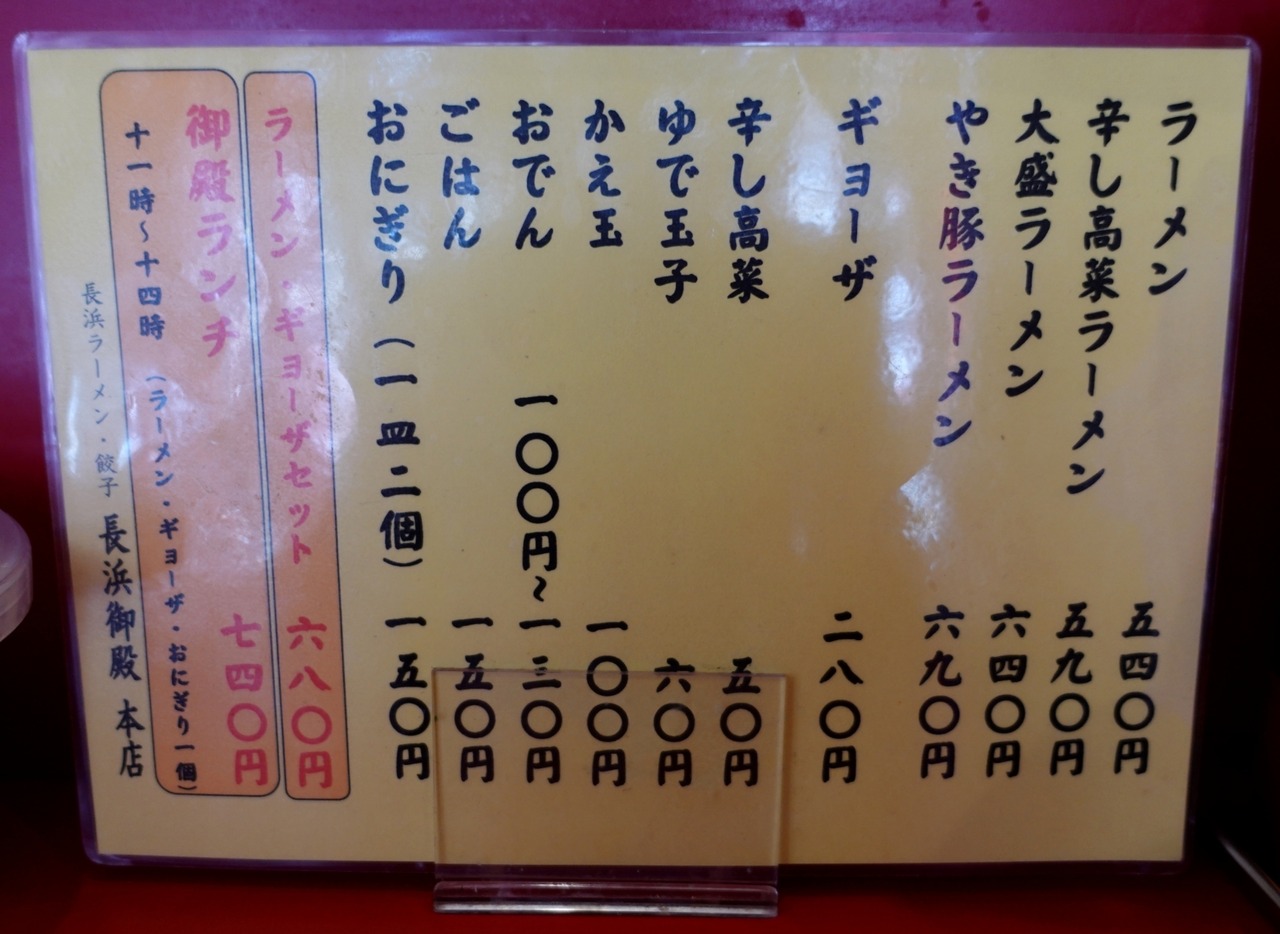 ラーメン 五四〇円
辛し高菜ラーメン 五九〇円
大盛ラーメン 六四〇円
やき豚ラーメン 六九〇円
ギョーザ 二八〇円
辛し高菜 五〇円
ゆで玉子 六〇円
かえ玉 一〇〇円
おでん 一〇〇円〜一三〇円
ごはん 一五〇円
おにぎり(一皿二個) 一五〇円
ラーメン・ギョーザセット 六八〇円
御殿ランチ 七四〇円
十一時〜十四時 (ラーメン・ギョーザ・おにぎり一個)
長浜ラーメン・餃子 長浜御殿 本店